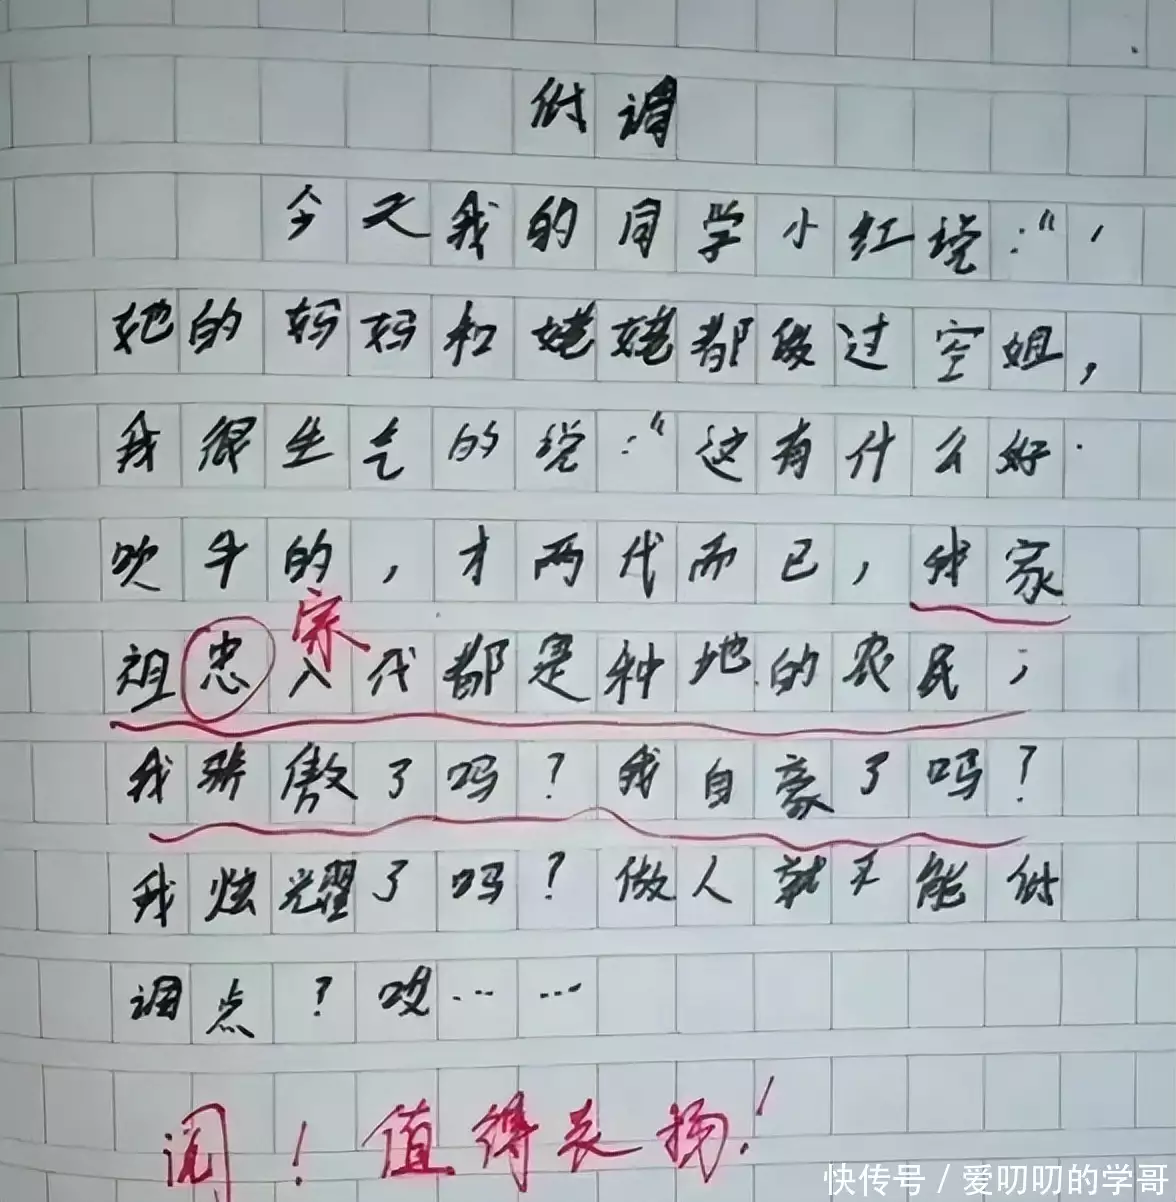 低调
今天我的同学小红说:“,
她的妈妈和姥姥都做过空姐,
我很生气的说:“这有什么好
吹牛的,才两代而已,我家
宗
祖忠八代都是种地的农民;
我骄傲了吗?我自豪了吗?
我炫耀了吗?做人就不能低
调点?哎……
阅!值得表扬!
快传号/爱叨叨的学哥